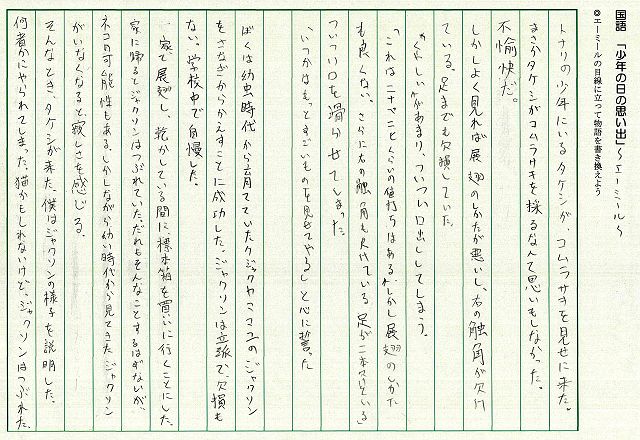 国語 「少年の日の思い出」～エーミール～
◎エーミールの目線に立って物語を書き換えよう
トナリの少年にいるタケシが、コムラサキを見せに来た。
まさかタケシがコムラサキを採るなんて思いもしなかった。
不愉快だ。
しかしよく見れば展翅のしかたが悪いし、右の触角が欠け
ている。足までも欠損していた。
くやしい が あまり、ついつい口出ししてしまう。
「これは二十ペニヒくらいの値打ちはある。しかし展翅のしかた
も良くない。さらに右の触角も欠けている。足が二本欠けている」
ついつい口を滑らせてしまった。
「いつかはもっとすごいものを見せてやる」と心に誓った
ぼくは幼虫時代から育てていたクジャクヤママユのジャクソン
をさなぎからかえすことに成功した。ジャクソンは立派で欠損も
ない。学校中で自慢した。
家で展翅し、乾かしている間に、標本箱を買いに行くことにした。
家に帰るとジャクソンはつぶれていた。だれもそんなことするはずないが、
ネコの可能性もある。しかしながら幼い時代から見てきたジャクソン
がいなくなると、寂しさを感じる。
そんなとき、タケシが来た。僕はジャクソンの様子を説明した。
何者かにやられてしまった。猫かもしれないけど、ジャクソンはつぶれた。